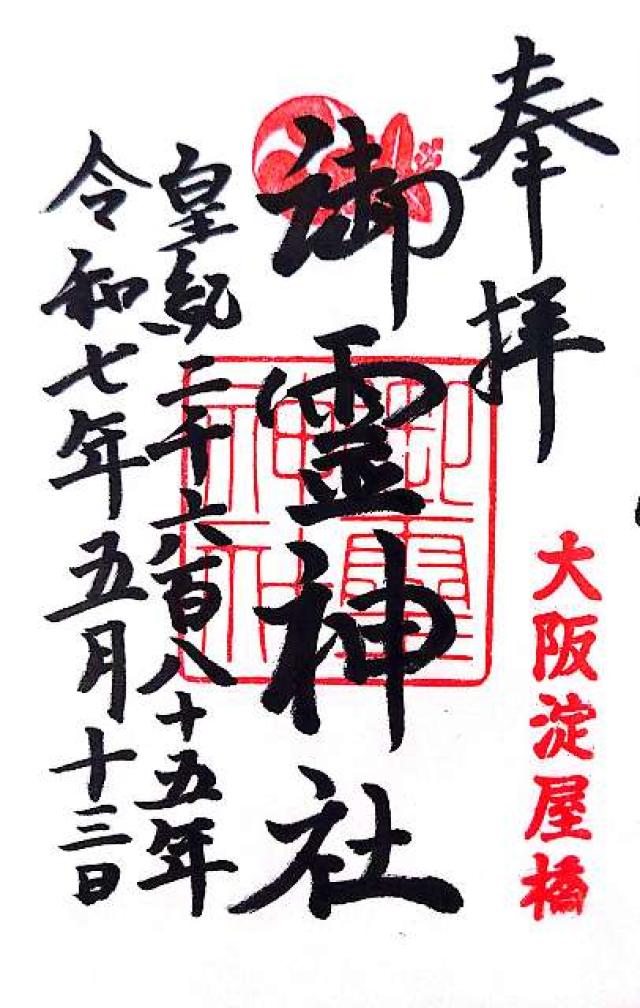 奉拝
大阪淀屋橋
御霊神社
御霊神社
皇紀二千六百八十五年
令和七年五月十三日